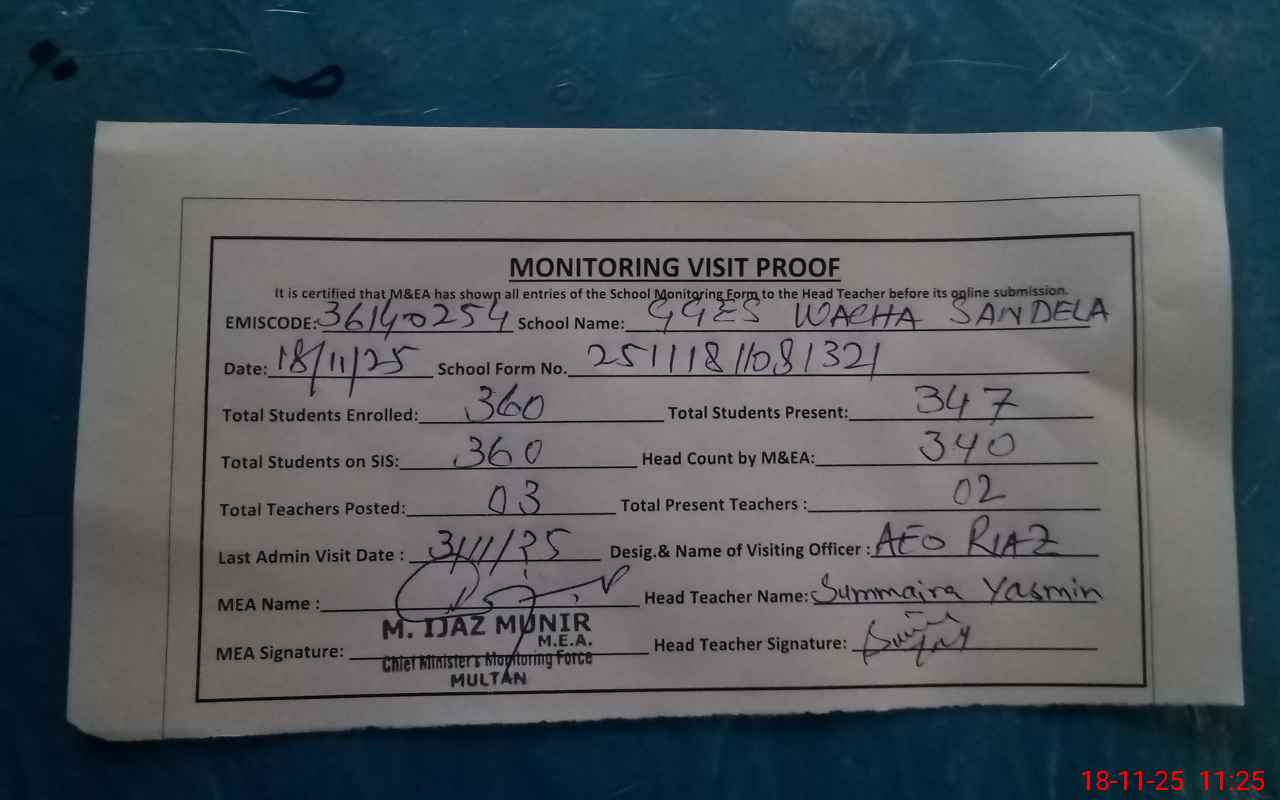 MONITORING VISIT PROOF
It is certified that M&EA has shown all entries of the School Monitoring Form to the Head Teacher before its online submission.
EMISCODE: 36140254 School Name: GGES WACHA SANDELA
Date: 18/11/25 School Form No. 25111811081321
Total Students Enrolled: 360 Total Students Present: 347
Total Students on SIS: 360 Head Count by M&EA: 340
Total Teachers Posted: 03 Total Present Teachers : 02
Last Admin Visit Date : 3/11/25 Desig.& Name of Visiting Officer : AEO RIAZ
MEA Name : Head Teacher Name: Summaira Yasmin
M. IJAZ MUNIR
M.E.A.
MEA Signature: Chief Minister's Monitoring Force Head Teacher Signature:
MULTAN
18-11-25 11:25